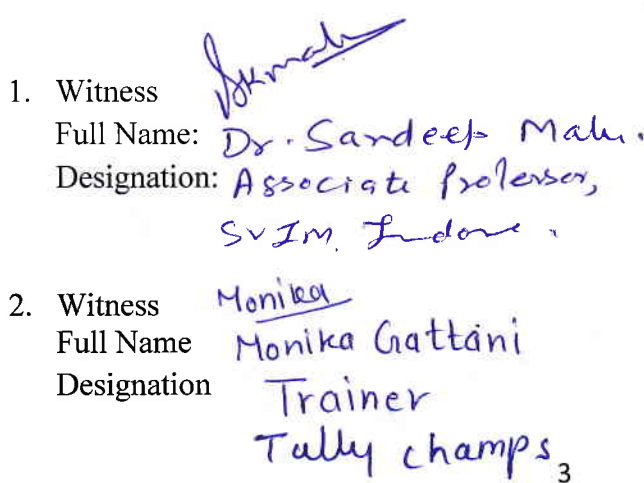 1. Witness
Full Name: Dr. Sandeep Malu.
Designation: Associate Professor,
SVIM, Indore.
2. Witness Monika
Full Name Monika Gattani
Designation Trainer
Tally champs
3